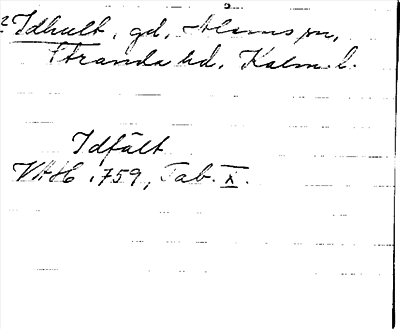 ? Idhult, gd, Ålems sn,
Stranda hd, Kalm. l.
Idfält
VAH 1759, Tab. X.